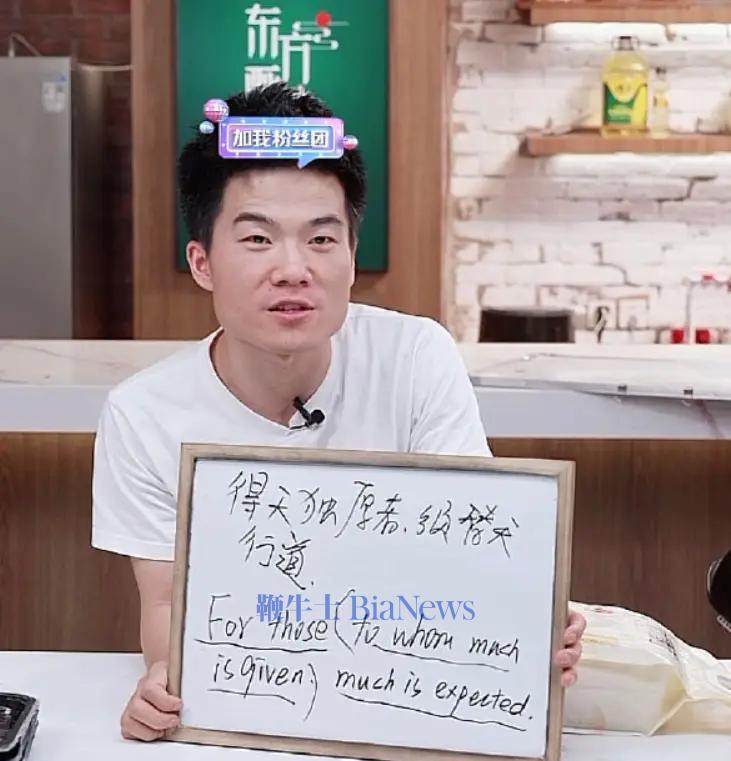 东方
加我粉丝团
得天独厚者.须替天
行道.
鞭牛士 BiaNews
For those (to whom much
is given) much is expected.